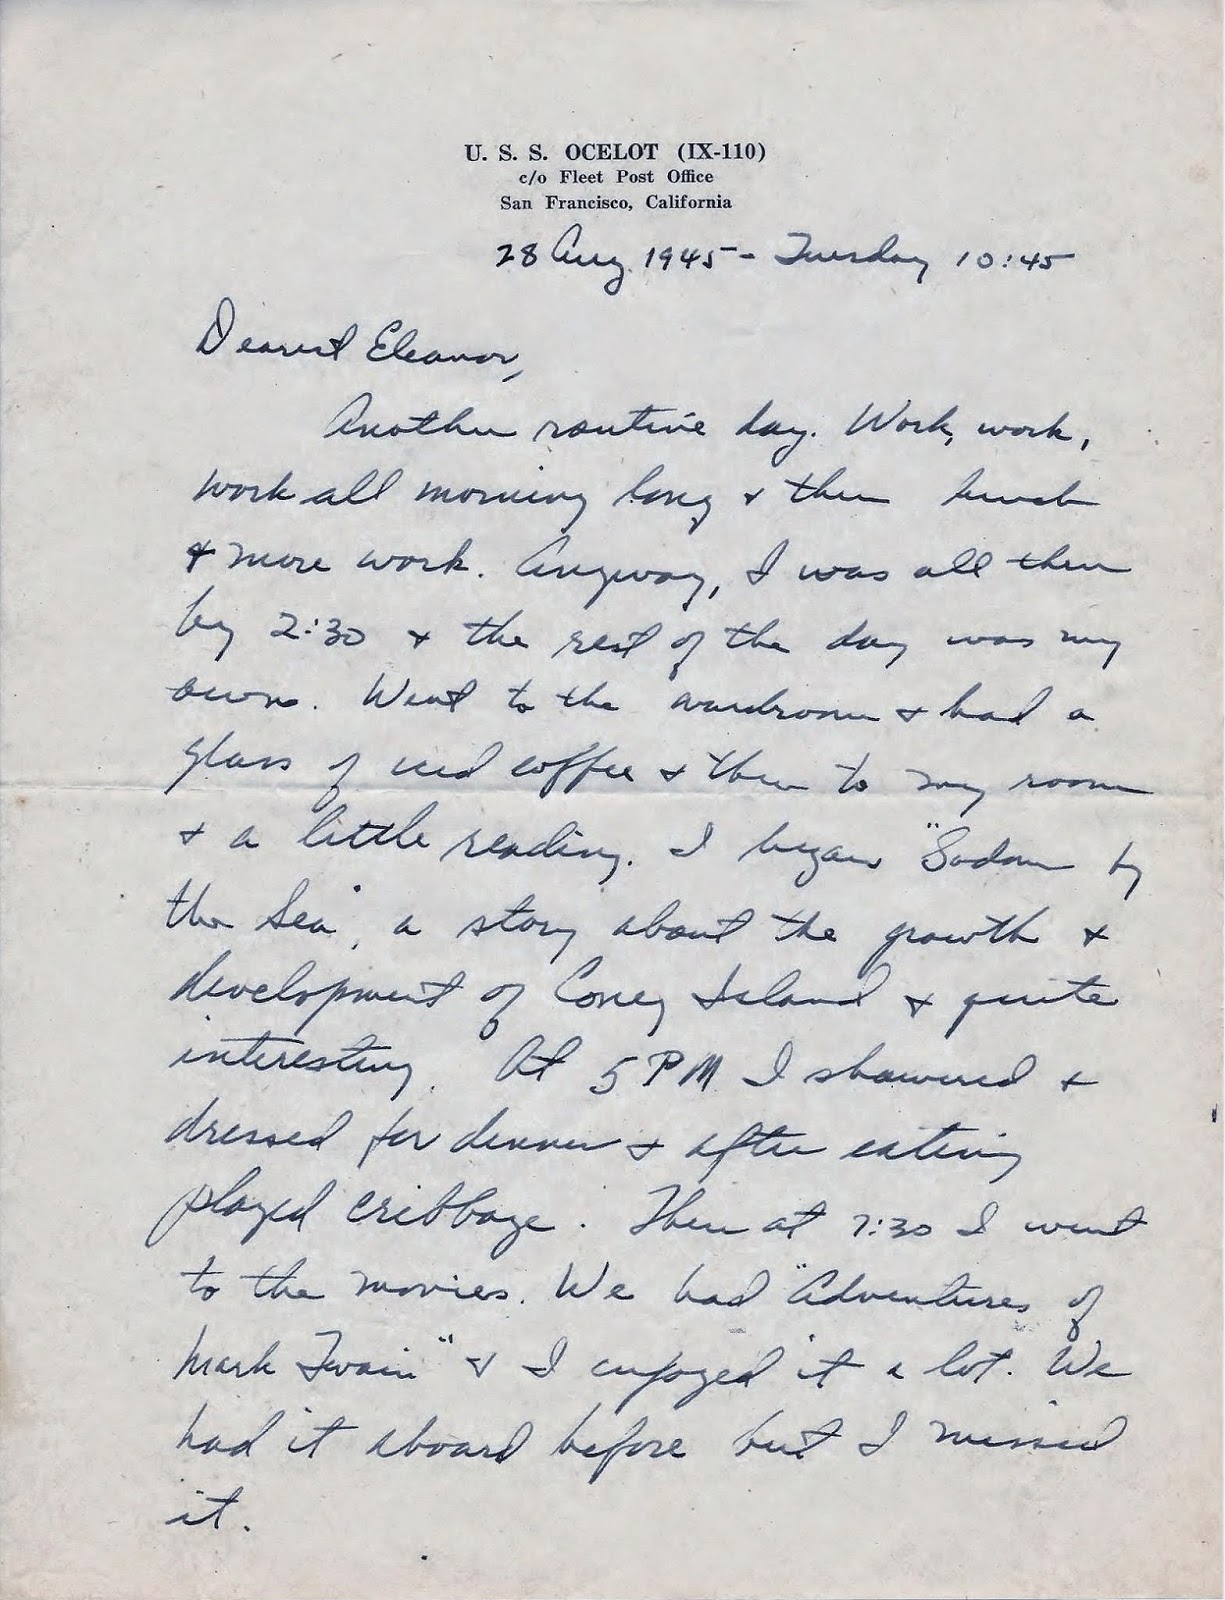 U. S. S. OCELOT (IX-110)
c/o Fleet Post Office
San Francisco, California
28 Aug. 1945 - Tuesday 10:45
Dearest Eleanor,
Another routine day. Work, work,
work all morning long & then lunch
& more work. Anyway, I was all thru
by 2:30 & the rest of the day was my
own. Went to the wardroom & had a
glass of iced coffee & then to my room
& a little reading. I began "Sodom by
the Sea", a story about the growth &
development of Coney Island & quite
interesting. At 5 PM I showered &
dressed for dinner & after eating
played cribbage. Then at 7:30 I went
to the movies. We had "Adventures of
Mark Twain" & I enjoyed it a lot. We
had it aboard before but I missed
it.